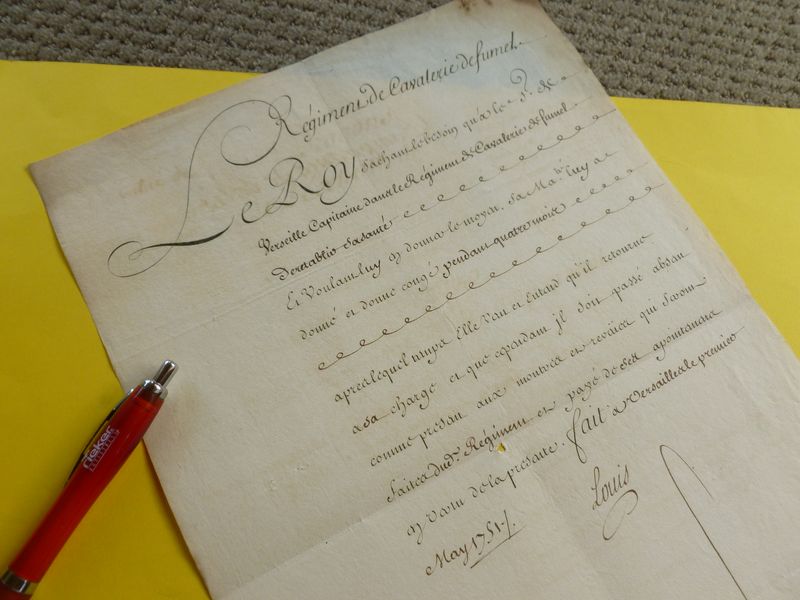 Régiment de Cavalerie de fumel.
Le Roy sachant le besoin qu'a le S.r de
Verseille Capitaine dans le Régiment de Cavalerie de fumel
de retablir sa santé
Et Voulant luy en donner le moyen, Sa Ma.té luy a
donné et donne congé pendant quatre mois
apres lequel temps Elle Veut et Entend qu'il retourne
a sa charge et que cependant il soit passé absent
comme present aux montres et revües qui seront
faites dud. Régiment et payé de ses apointemens
en Vertu de la presente. fait a Versailles le premier
May 1751.
Louis
rieker